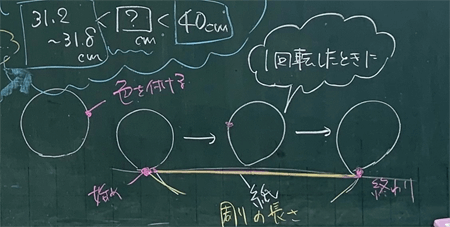 31.2
~31.8
cm
<
?
cm
<
40cm
1回転したときに
色を付ける
始め
終わり
紙
周りの長さ